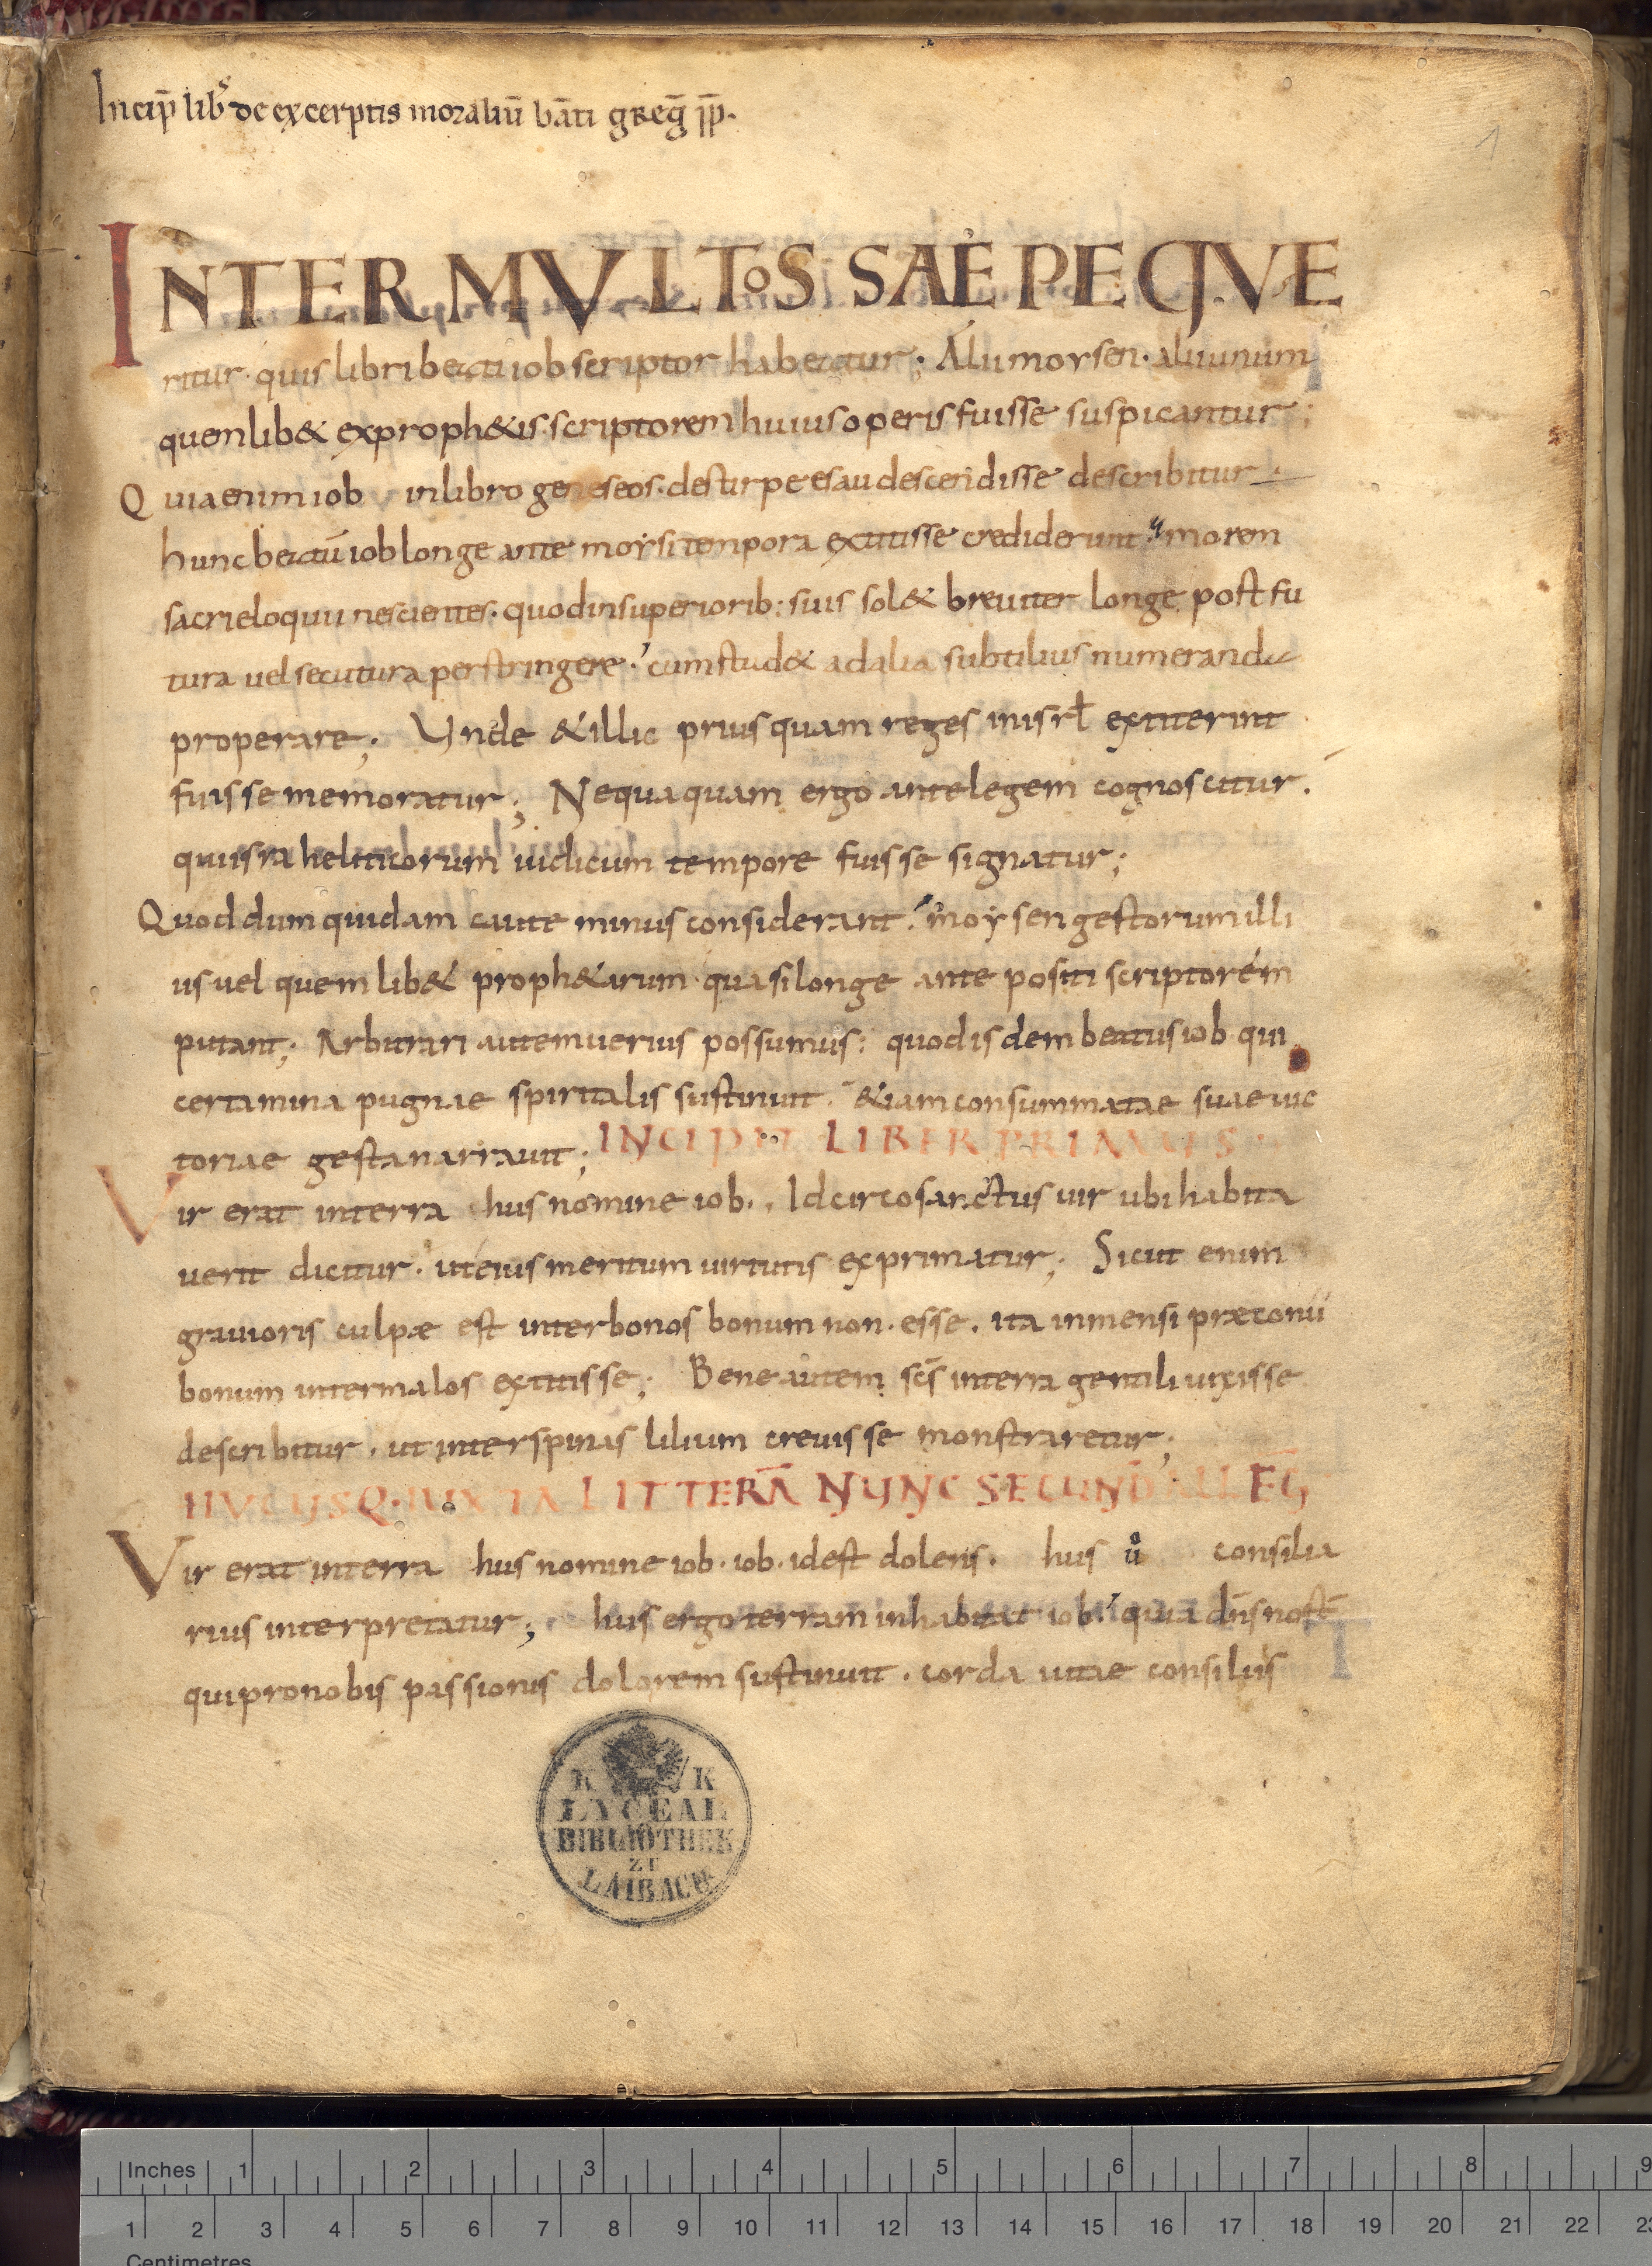 Incip̄ lib̄ de excerptis moraliū bāti greḡ pp̄.
1
INTER MVLTOS SAEPE QVE
ritur· quis libri beati iob scriptor habeatur; Alii moysen· alii unum
quemlib& exproph&is scriptorem huius operis fuisse suspicantur;
Quia enim iob in libro geneseos· de stirpe esau descendisse describitur·
hunc beatū iob longe ante moysi tempora extitisse crediderunt· morem
sacri eloquii nescientes· quod in superiorib; suis sol& breuiter longe post fu
tura uel secutura perstringere· cum stud& ad alia subtilius numeranda
properare; Unde & illic priusquam reges in isrł extiterint
fuisse memoratur; Nequaquam ergo ante legem cognoscitur·
qui israheliticorum iudicum tempore fuisse signatur;
Quod dum quidam caute minus considerant· moysen gestorum illi
us uel quemlib& proph&arum· quasi longe ante positi scriptorem
putant; Arbitrari autem uerius possumus· quod isdem beatus iob qui
certamina pugnae spiritalis sustinuit· &iam consummatae suae uic
toriae gesta narrauit; INCIPIT LIBER PRIMUS
Vir erat in terra hus nomine iob·. Idcirco sanctus uir ubi habita
uerit dicitur· ut eius meritum uirtutis exprimatur; Sicut enim
grauioris culpæ est inter bonos bonum non· esse· ita inmensi præconii
bonum inter malos extitisse; Bene autem sc̄s in terra gentili uixisse
describitur· ut inter spinas lilium creuisse monstraretur;
HUCUSQ· IUXTA LITTERĀ NUNC SECUND̄ ALLEḠ
Vir erat in terra hus nomine iob· iob· id est dolens· hus ů consilia
rius interpretatur; hus ergo terram inhabitat iob· quia dn̄s nost̄
qui pro nobis passionis dolorem sustinuit· corda uitae consiliis
K K
LYCEAL
BIBLIOTHEK
ZU
LAIBACH
Inches 1 2 3 4 5 6 7 8 9
1 2 3 4 5 6 7 8 9 10 11 12 13 14 15 16 17 18 19 20 21 22 23
Centimetres